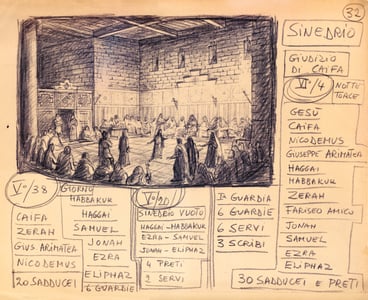 32
SINEDRIO
GIUDIZIO
DI CAIFA
VIº/4
NOTTE
GESÙ
CAIFA
NICODEMUS
GIUSEPPE ARIMATEA
HAGGAI
HABBAKUK
ZERAH
FARISEO AMICO
JONAH
SAMUEL
EZRA
ELIPHAZ
30 SADDUCEI E PRETI
Vº/38
GIORNO
CAIFA
ZERAH
GIUS. ARIMATEA
NICODEMUS
20 SADDUCEI
HABBAKUK
HAGGAI
SAMUEL
JONAH
EZRA
ELIPHAZ
6 GUARDIE
SINEDRIO VUOTO
HAGGAI-HABBAKUK
EZRA-SAMUEL
JONAH-ELIPHAZ
4 PRETI
2 SERVI
Iª GUARDIA
6 GUARDIE
6 SERVI
3 SCRIBI